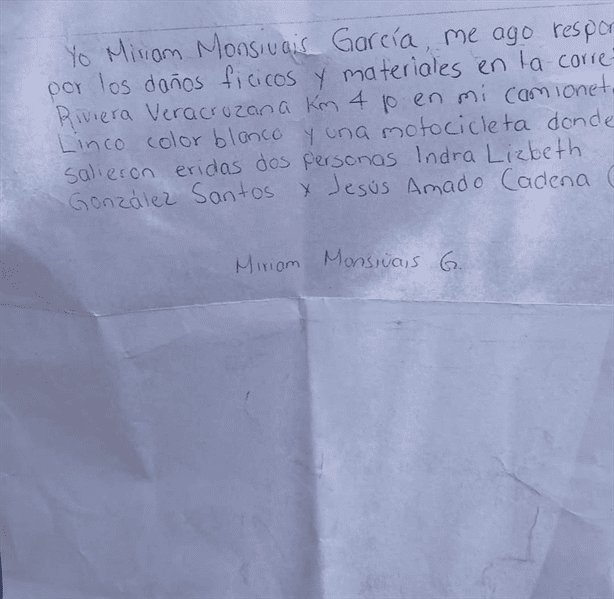 Yo Miriam Monsivais García, me ago respon
por los daños ficicos y materiales en la carre
Riviera Veracruzana Km 4 p en mi camionet
Linco color blanco y una motocicleta donde
salieron eridas dos personas Indra Lizbeth
González Santos y Jesús Amado Cadena
Miriam Monsivais G.